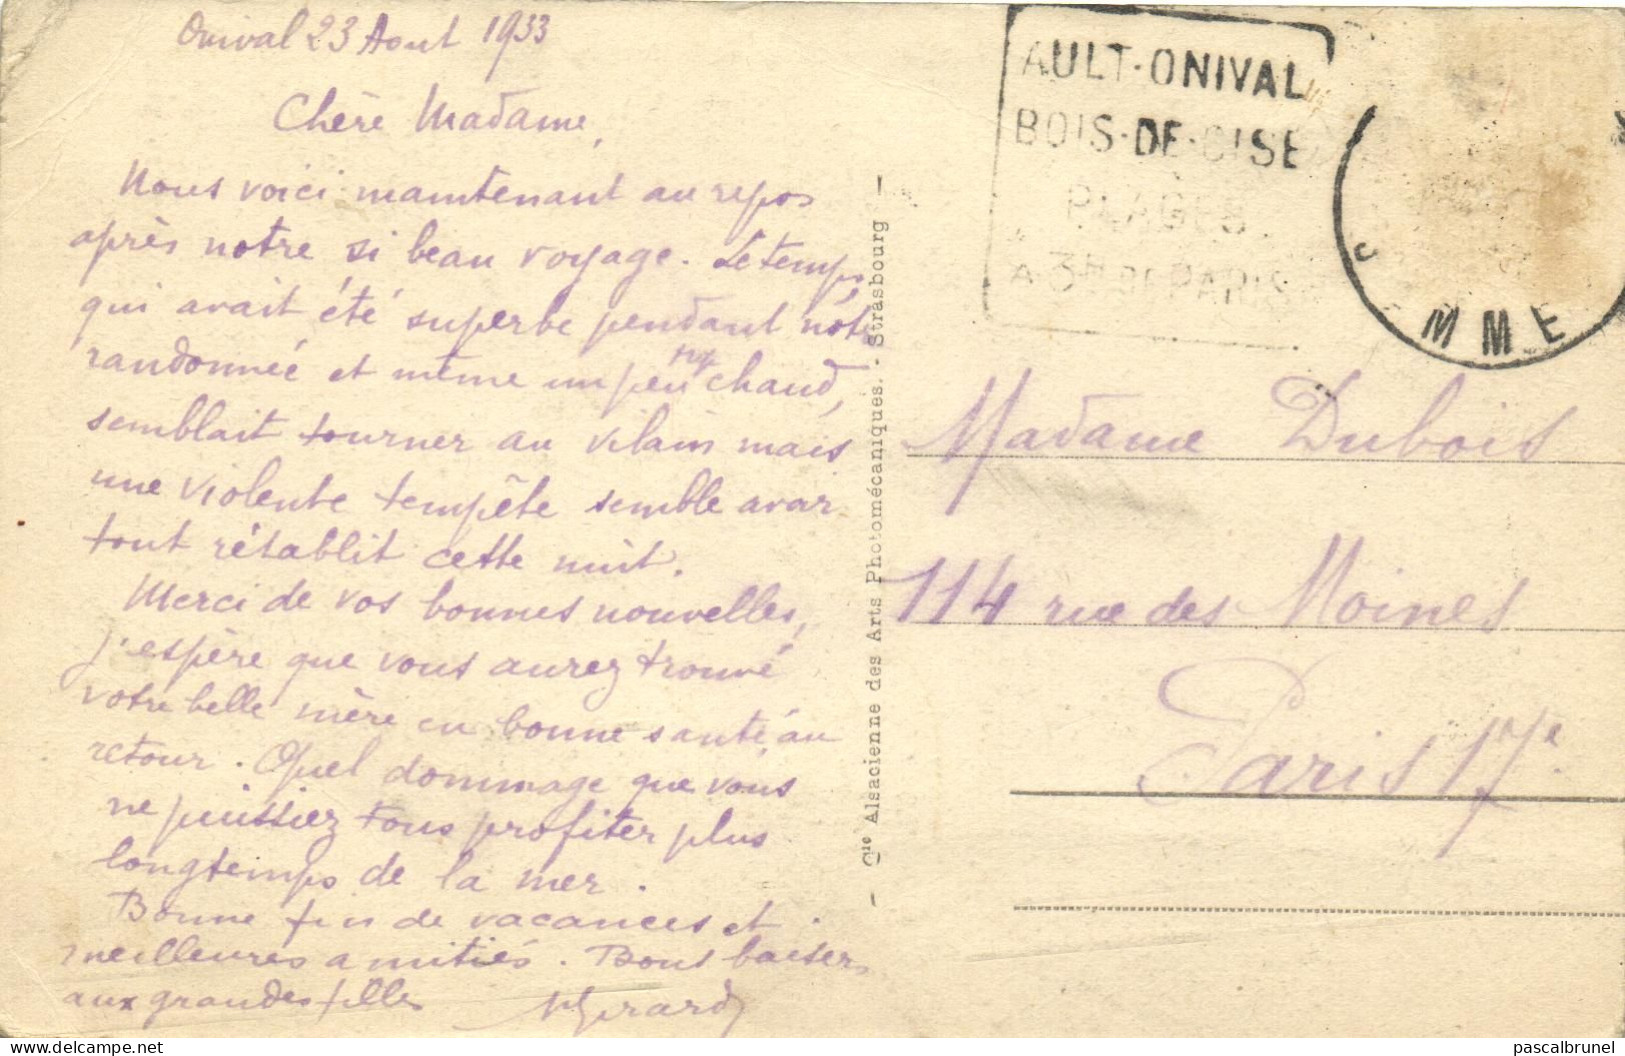 Onival 23 Aout 1933
Chère Madame,
Nous voici maintenant au repos
après notre si beau voyage. Le temps,
qui avait été superbe pendant notre
randonnée et même un peu trop chaud,
semblait tourner au vilain mais
une violente tempête semble avoir
tout rétablit cette nuit.
Merci de vos bonnes nouvelles,
j'espère que vous aurez trouvé
votre belle mère en bonne santé au
retour. Quel dommage que vous
ne puissiez tous profiter plus
longtemps de la mer.
Bonne fin de vacances et
meilleures amitiés. Bons baisers
aux grandes filles
Girard
- Cie Alsacienne des Arts Photomécaniques. - Strasbourg -
AULT-ONIVAL
BOIS-DE-CISE
PLAGES
A 3H DE PARIS
MME
Madame Dubois
114 rue des Moines
Paris 17e
https://www.delcampe.net
pascalbrunel